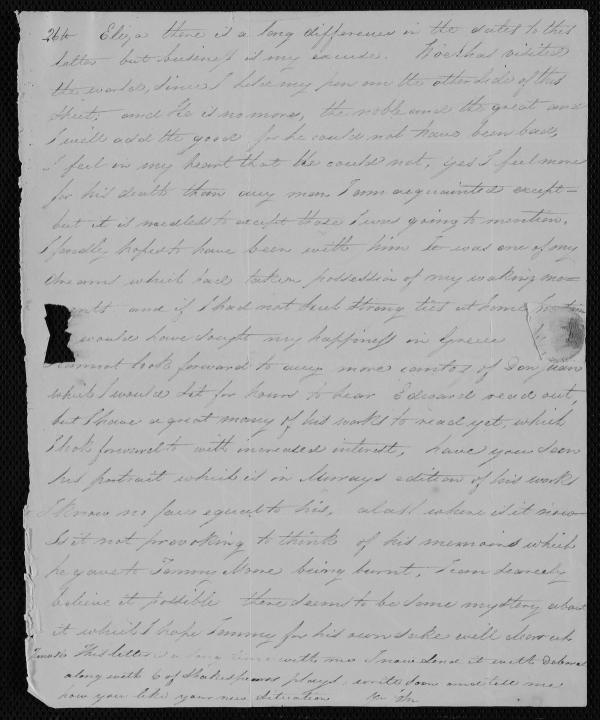 26th Eliza there is a long difference in the dates to this
letter but business is my excuse. Woe has visited
the world, since I held my pen on the other side of this
sheet, and He is no more, the noble and the great and
I will add the good for he could not have been bad,
I feel in my heart that He could not, yes I feel more
for his death than any man I am acquainted except=
but it is needless to except those I was going to mention.
I fondly hoped to have been with him it was one of my
dreams which had taken possession of my waking mo=
and if I had not such strong ties at home
would have sought my happiness in Greece
cannot look forward to any more cantos of Don Juan
which I would sit for hours to hear Edward read out,
but I have a great many of his works to read yet, which
I look forward to with increased interest, have you seen
his portrait which is in Murrays edition of his works
I know no face equal to his, alas! where is it now
Is it not provoking to think of his memoirs which
he gave to Tommy Moore being burnt, I can scarcely
believe it possible there seems to be some mystery about
it which I hope Tommy for his own sake will clear up
This letter is a long time with me I now send it with
along with 6 of Shakespears plays, write soon and tell me
how you like your new situation